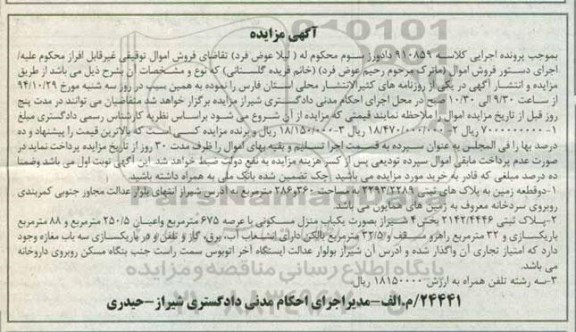 آگهی مزایده
بموجب پرونده اجرایی کلاسه ۹۱۰۸۵۹ دادورز سوم محکوم له ( لیلا عوض فرد) تقاضای فروش اموال توقیفی غیرقابل افراز محکوم علیه/
اجرای دستور فروش اموال (ماترک مرحوم رحیم عوض فرد) (خانم فریده گلستانی) که نوع و مشخصات آن بشرح ذیل می باشد از طریق
مزایده و انتشار آگهی در یکی از روزنامه های کثیرالانتشار محلی استان فارس را نموده به همین سبب در روز سه شنبه مورخ ۹۴/۱۰/۲۹
از ساعت ۹/۳۰ الی ۱۰/۳۰ صبح در محل اجرای احکام مدنی دادگستری شیراز مزایده برگزار خواهد شد متقاضیان می توانند در مدت پنج
روز قبل از تاریخ مزایده اموال را ملاحظه نمایند قیمتی که مزایده از آن شروع می شود براساس نظریه کارشناس رسمی دادگستری مبلغ
۱- ۷۰۰۰۰۰۰۰۰۰ ریال ۲- ۱۸/۴۷۰/۰۰۰/۰۰۰ ریال ۳- ۱۸/۱۵۰/۰۰۰ ریال و برنده مزایده کسی است که بالاترین قیمت را پیشنهاد و ده
درصد بها را فی المجلس به عنوان سپرده به قسمت اجرا تسلیم و بقیه بهای اموال را ظرف مدت ۳۰ روز از تاریخ مزایده پرداخت نماید در
صورت عدم پرداخت مابقی اموال سپرده تودیعی پس از کسر هزینه مزایده به نفع دولت ضبط خواهد شد. این آگهی نوبت اول می باشد وضمنا
ده درصد مبلغی که قادر به خرید مورد مزایده می باشید چک تضمین شده بانک ملی به همراه داشته باشید.
۱-دوقطعه زمین به پلاک های ثبتی ۲۲۹۳/۲۲۸۹ به مساحت ۲۸۶/۳۶۰ مترمربع به آدرس شیراز انتهای بلوار عدالت مجاور جنوبی کمربندی
روبروی سردخانه معروف به زمین های همایون می باشد.
۲-پلاک ثبتی ۲۱۴۲/۴۴۴۶ بخش ۴ شیراز بصورت یکباب منزل مسکونی با عرصه ۶۷۵ مترمربع واعیان ۲۵۰/۵ مترمربع و ۸۸ مترمربع
پارکینگ و ۳۲ مترمربع راهرو مسقف و ۳۲/۵ مترمربع بالکن دارای انشعاب آب، برق، گاز و تلفن و در پارکینگ سه باب مغازه وجود
دارد که امتیاز تجاری آن واگذار شده و آدرس آن شیراز بولوار عدالت ایستگاه آخر اتوبوس سمت راست جنب بنگاه مسکن روبروی داروخانه
می باشد.
۳-سه رشته تلفن همراه به ارزش ۱۸۱۵۰۰۰۰ ریال.
۲۴۴۴۱/م.الف-مدیراجرای احکام مدنی دادگستری شیراز-حیدری